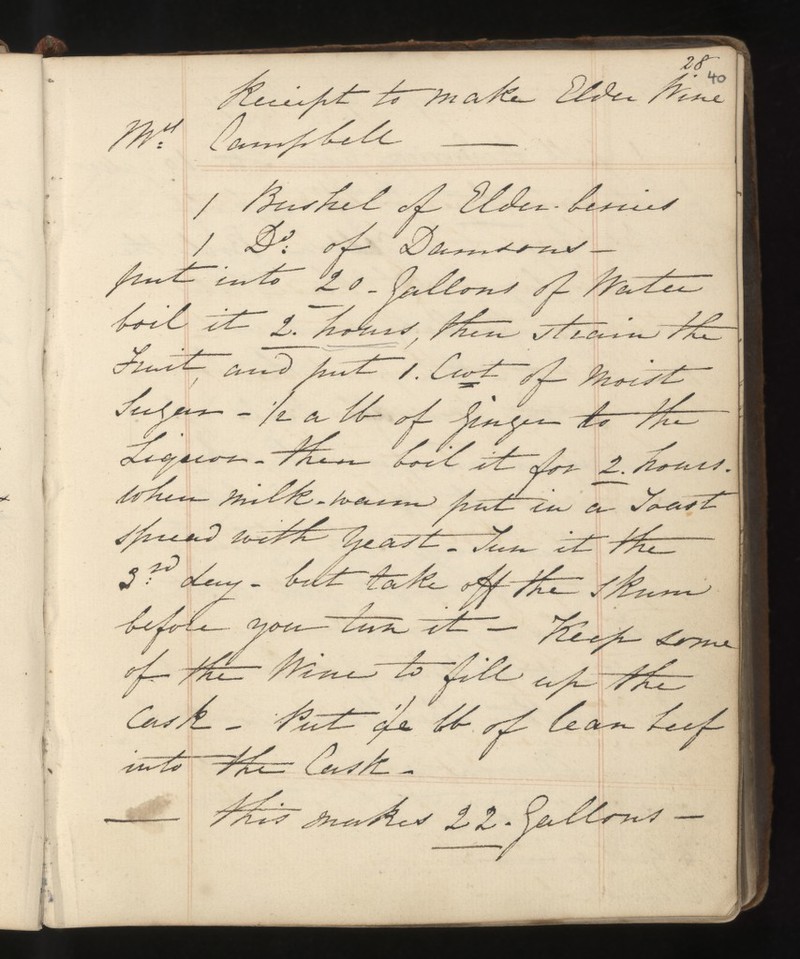 28
40
Receipt to make Elder Wine
Mrs: Campbell —
1 Bushel of Elder-berries
1 Do: of Damsons -
put into 20 - Gallons of Water
boil it 2. hours, then strain the
Fruit, and put 1. Cwt of Moist
Sugar - 1/2 a lb of Ginger to the
Liquor - then boil it for 2. hours.
when milk-warm put in a Toast
spread with Yeast - Tun it the
3rd day - but take off the skum
before you tun it - Keep some
of the Wine to fill up the
Cask - Put lb of lean beef
into the Cask -
— this makes 22 - Gallons -